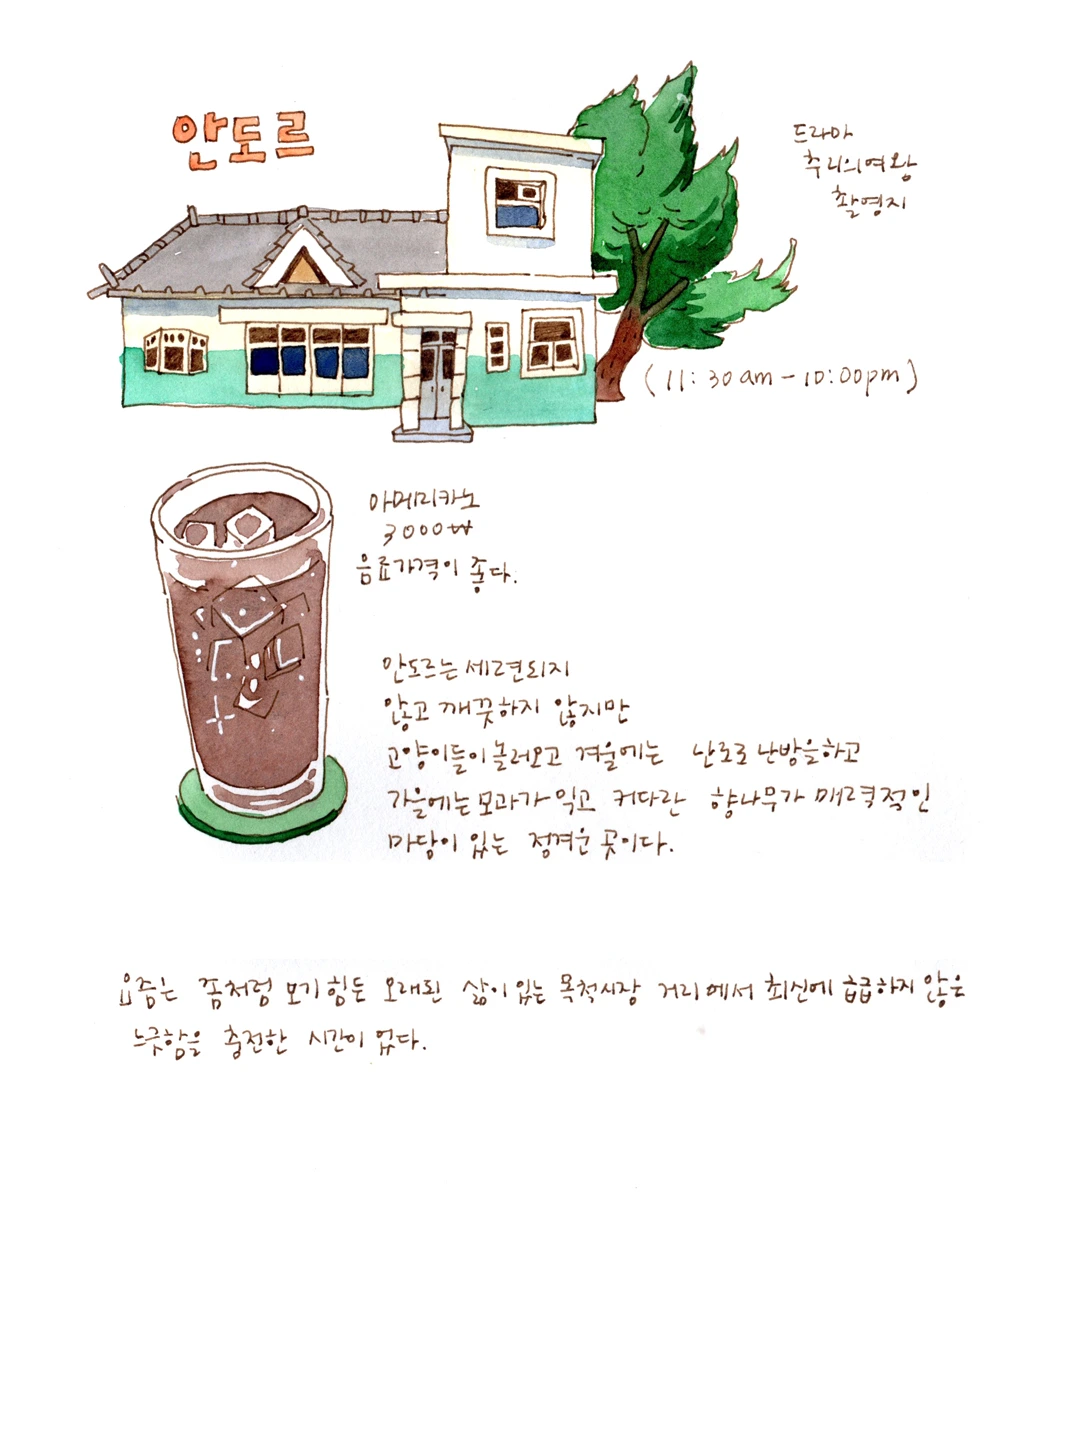 안도르
드라마
추리의여왕
촬영지
(11:30am-10:00pm)
아메리카노
3000₩
음료가격이 좋다.
안도르는 세련되지
않고 깨끗하지 않지만
고양이들이놀러오고 겨울에는 난로로 난방을하고
가을에는 모과가 익고 커다란 향나무가 매력적인
마당이 있는 정겨운 곳이다.
요즘는 좀처럼 보기 힘든 오래된 삶이 있는 목척시장 거리에서 최신에 급급하지 않은
느긋함을 충전한 시간이 었다.